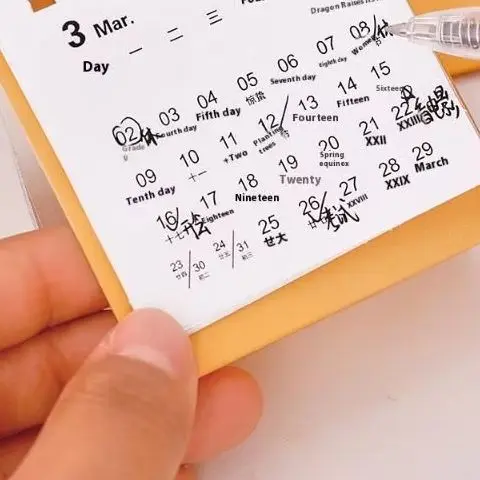 3 Mar.
Dragon Raises
Day 一 二 三
02 03 04 05 06 07 08
Fourth day Fifth day 惊蛰 Seventh day Eighth day Women
09 10 11 12 13 14 15
Tenth day 十一 +Two Planting trees 节 Fourteen Fifteen Sixteen
16 17 18 19 20 21 22
十七 开会 Eighteen Nineteen Twenty Spring equinex XXII XXIII
23 30 24 31 25 26 27 28 29
廿四 初二 廿五 初三 廿六 考试 XXVIII XXIX March